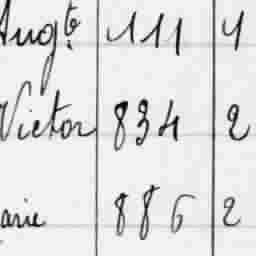 Augte 111 4
Victor 834 2
arie 886 2